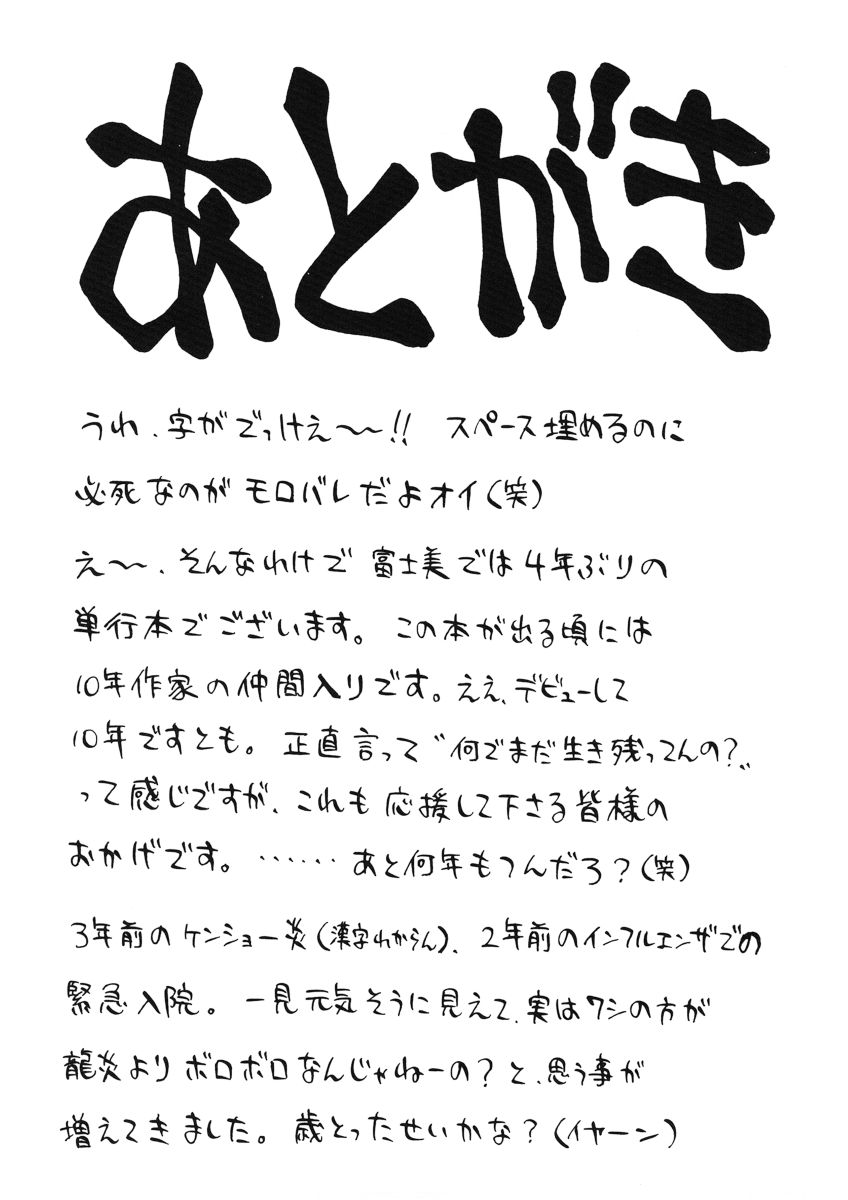 あとがき
うわ、字がでっけえ〜〜!! スペース埋めるのに
必死なのがモロバレだよオイ(笑)
え〜〜、そんなわけで富士美では4年ぶりの
単行本でございます。この本が出る頃には
10年作家の仲間入りです。ええ、デビューして
10年ですとも。正直言って〝何でまだ生き残ってんの?〟
って感じですが、これも応援して下さる皆様の
おかげです。……あと何年もつんだろ?(笑)
3年前のケンショー炎(漢字わからん)、2年前のインフルエンザでの
緊急入院。一見元気そうに見えて、実はワシの方が
龍炎よりボロボロなんじゃねーの?と、思う事が
増えてきました。歳とったせいかな?(イヤーン)